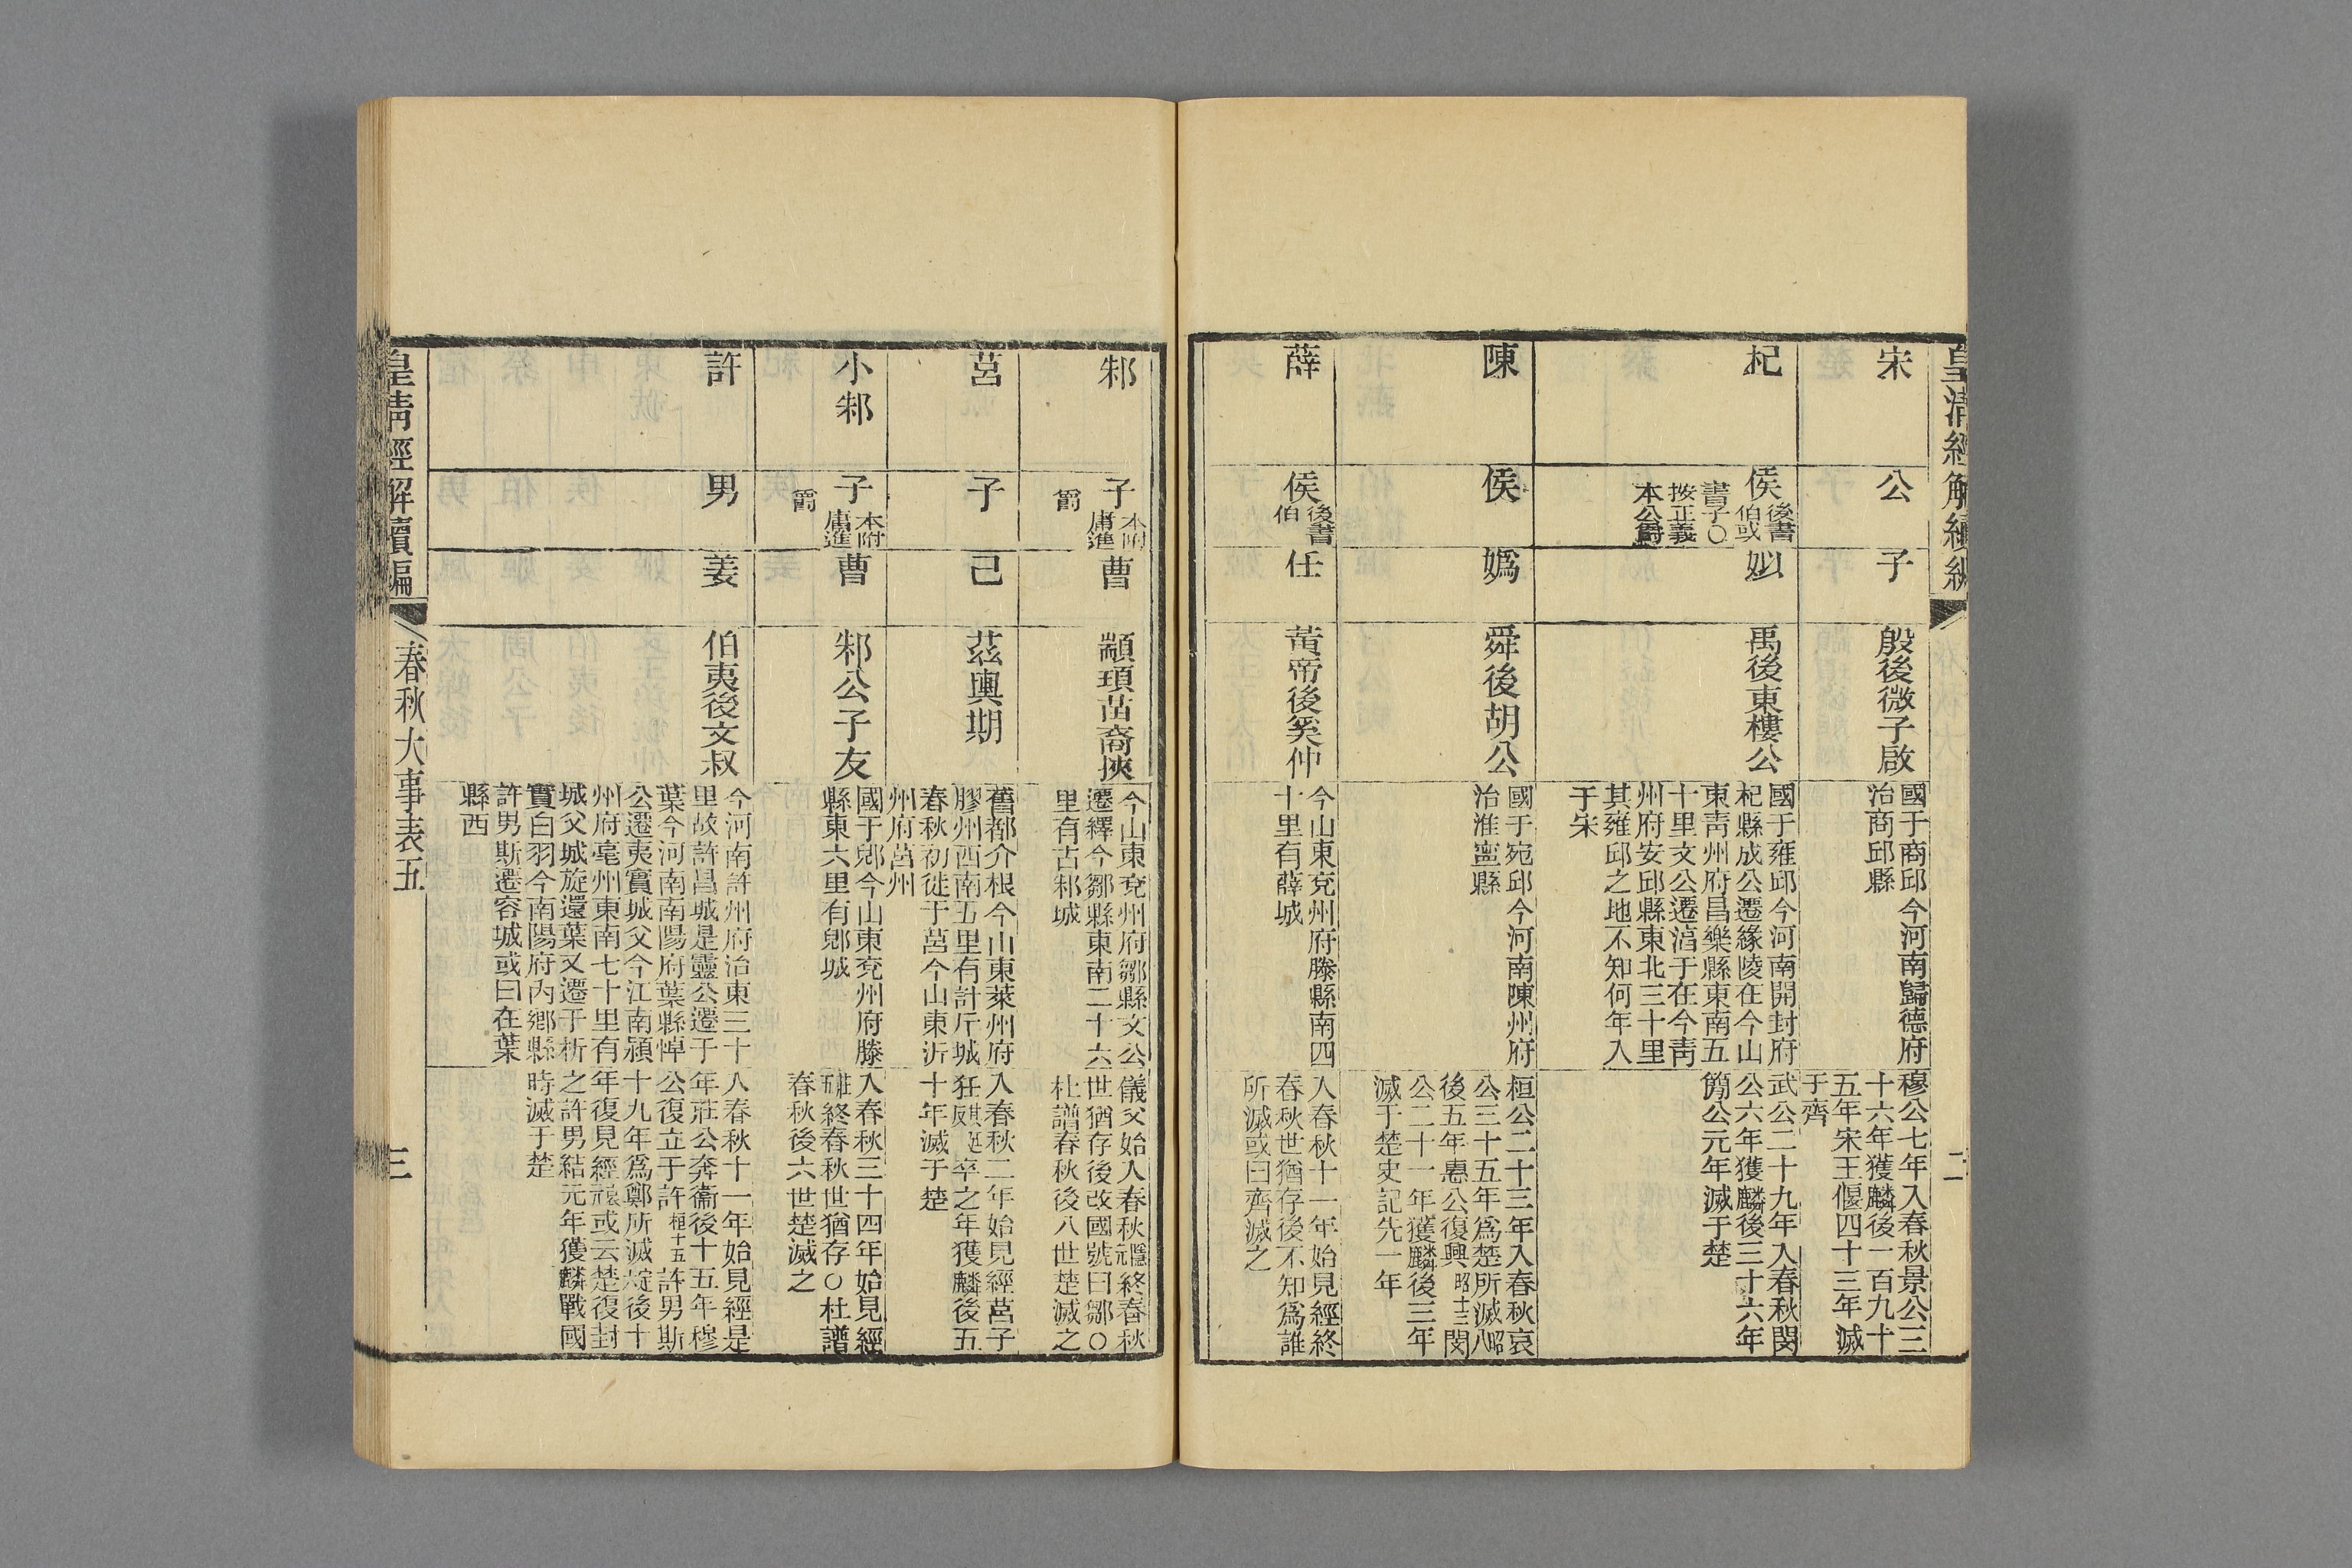 皇清經解續編
二
宋
公
子
殷後微子啟
國于商邱今河南歸德府
治商邱縣
穆公七年入春秋景公三
十六年獲麟後一百九十
五年宋王偃四十三年滅
于齊
杞
侯後書
伯或
書子○
按正義
本公爵
姒
禹後東樓公
國于雍邱今河南開封府
杞縣成公遷緣陵在今山
東青州府昌樂縣東南五
十里文公遷淯于在今青
州府安邱縣東北三十里
其雍邱之地不知何年入
于宋
武公二十九年入春秋閔
公六年獲麟後三十六年
簡公元年滅于楚
陳
侯
媯
舜後胡公
國于宛邱今河南陳州府
治淮寧縣
桓公二十三年入春秋哀
公三十五年爲楚所滅昭八
後五年惠公復興昭十三閔
公二十一年獲麟後三年
滅于楚史記先一年
薛
侯後書
伯
任
黃帝後奚仲
今山東兗州府滕縣南四
十里有薛城
入春秋十一年始見經終
春秋世猶存後不知爲誰
所滅或曰齊滅之
邾
子本附
庸進
爵
曹
顓頊苗裔挾
今山東兗州府鄒縣文公
遷繹今鄒縣東南二十六
里有古邾城
儀父始入春秋隱元終春秋
世猶存後改國號曰鄒○
杜譜春秋後八世楚滅之
莒
子
己
茲輿期
舊都介根今山東萊州府
膠州西南五里有計斤城
春秋初徙于莒今山東沂
州府莒州
入春秋二年始見經莒子
狂 卒之年獲麟後五
十年滅于楚
小邾
子本附
庸進
爵
曹
邾公子友
國于郳今山東兗州府滕
縣東六里有郳城
入春秋三十四年始見經
終春秋世猶存○杜譜
春秋後六世楚滅之
許
男
姜
伯夷後文叔
今河南許州府治東三十
里故許昌城是靈公遷于
葉今河南南陽府葉縣悼
公遷夷實城父今江南潁
州府亳州東南七十里有
城父城旋還葉又遷于析
實白羽今南陽府內鄉縣
許男斯遷容城或曰在葉
縣西
入春秋十一年始見經是
年莊公奔衞後十五年穆
公復立于許桓十五許男斯
十九年爲鄭所滅定六後十
年復見經哀元或云楚復封
之許男結元年獲麟戰國
時滅于楚
皇清經解續編
春秋大事表五
三